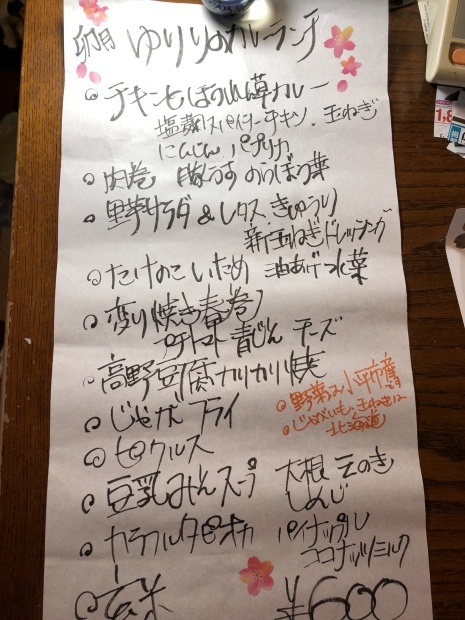 卯月 ゆりりのカレーランチ
チキンとほうれん草カレー
塩麹スパイシーチキン、玉ねぎ
にんじん パプリカ
肉巻 豚うす のらぼう菜
野菜サラダ&レタス、きゅうり
新玉ねぎドレッシング
たけのこいため 油あげ 水菜
変り焼き春巻
プチトマト 青じん チーズ
高野豆腐カリカリ焼
野菜るみ小平市産です
じゃがいも、玉ねぎは
北海道
じゃがフライ
ピクルス
豆乳みそスープ 大根 えのき
しめじ
カラフルタピオカ パイナップル
ココナッツミルク
玄米 ¥600